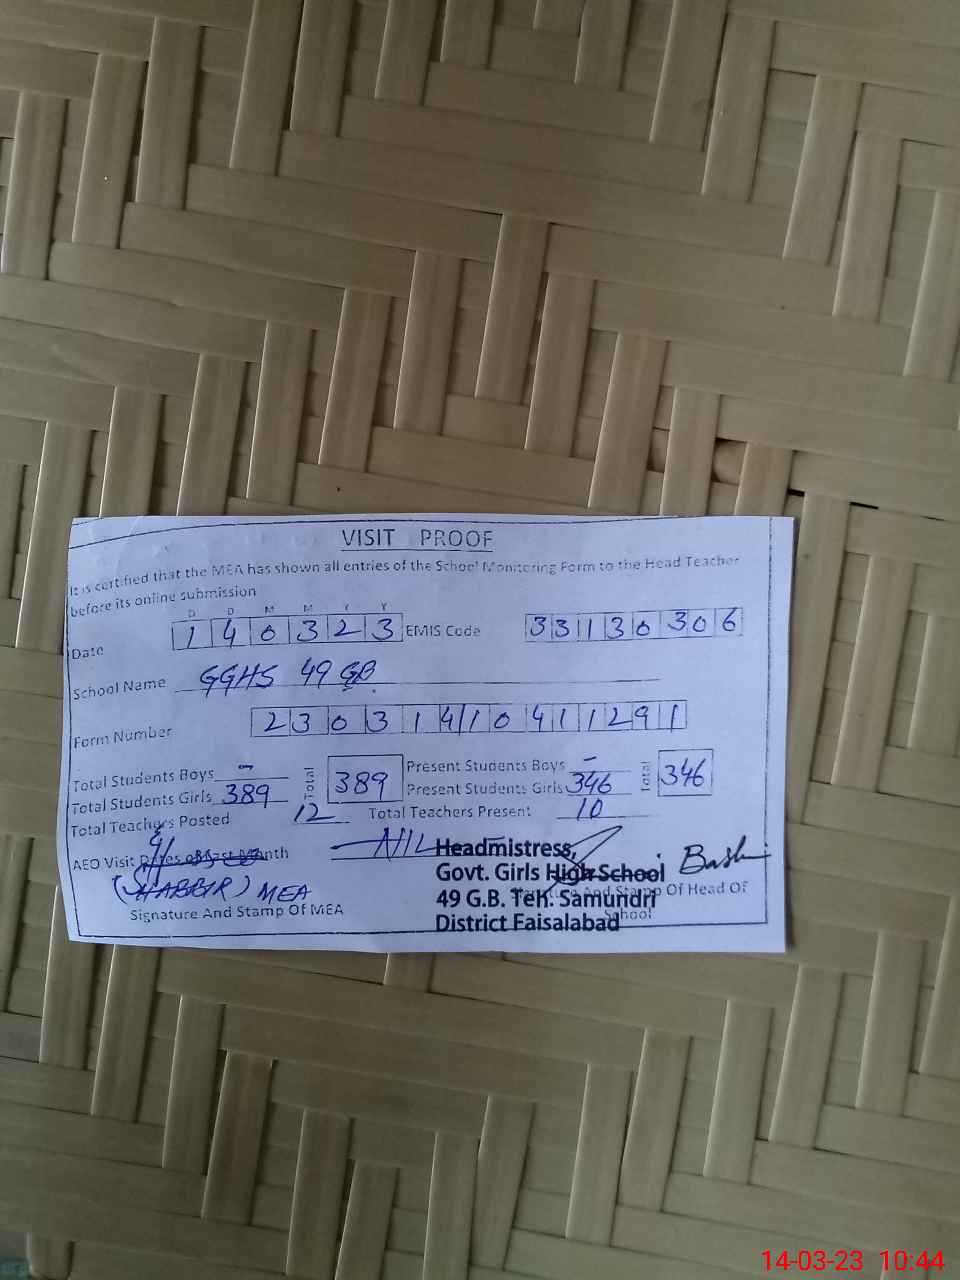 VISIT PROOF
It is certified that the MEA has shown all entries of the School Monitering Form to the Head Teacher
before its online submission
D D M M Y Y
Date 1 4 0 3 2 3 EMIS Code 3 3 1 3 0 3 0 6
School Name GGHS 49 GB
Form Number 2 3 0 3 1 4 1 0 4 1 1 2 9 1
Total Students Boys - Total 389 Present Students Boys - Total 346
Total Students Girls 389 Present Students Girls 346
Total Teachers Posted 12 Total Teachers Present 10
AEO Visit Dates of Last Month NIL
Headmistress,
Govt. Girls High School
49 G.B. Teh. Samundri
District Faisalabad
(SHABBIR) MEA
Signature And Stamp Of MEA
Signature And Stamp Of Head Of
School
14-03-23 10:44